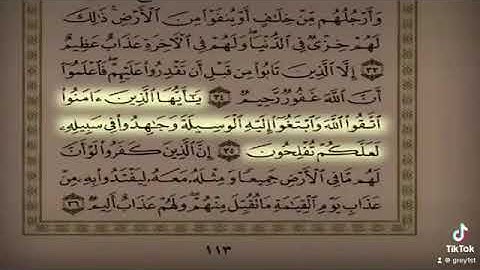 وَأَرْجُلُهُم مِّنْ خِلَـٰفٍ أَوْ يُنفَوْا۟ مِنَ ٱلْأَرْضِ ۚ ذَٰلِكَ
لَهُمْ خِزْىٌ فِى ٱلدُّنْيَا ۖ وَلَهُمْ فِى ٱلْـَٔاخِرَةِ عَذَابٌ عَظِيمٌ
٣٣ إِلَّا ٱلَّذِينَ تَابُوا۟ مِن قَبْلِ أَن تَقْدِرُوا۟ عَلَيْهِمْ ۖ فَٱعْلَمُوٓا۟
أَنَّ ٱللَّهَ غَفُورٌ رَّحِيمٌ ٣٤ يَـٰٓأَيُّهَا ٱلَّذِينَ ءَامَنُوا۟
ٱتَّقُوا۟ ٱللَّهَ وَٱبْتَغُوٓا۟ إِلَيْهِ ٱلْوَسِيلَةَ وَجَـٰهِدُوا۟ فِى سَبِيلِهِۦ
لَعَلَّكُمْ تُفْلِحُونَ ٣٥ إِنَّ ٱلَّذِينَ كَفَرُوا۟ لَوْ أَنَّ
لَهُم مَّا فِى ٱلْأَرْضِ جَمِيعًا وَمِثْلَهُۥ مَعَهُۥ لِيَفْتَدُوا۟ بِهِۦ مِنْ
عَذَابِ يَوْمِ ٱلْقِيَـٰمَةِ مَا تُقُبِّلَ مِنْهُمْ ۖ وَلَهُمْ عَذَابٌ أَلِيمٌ ٣٦
١١٣
TikTok
@grey1st